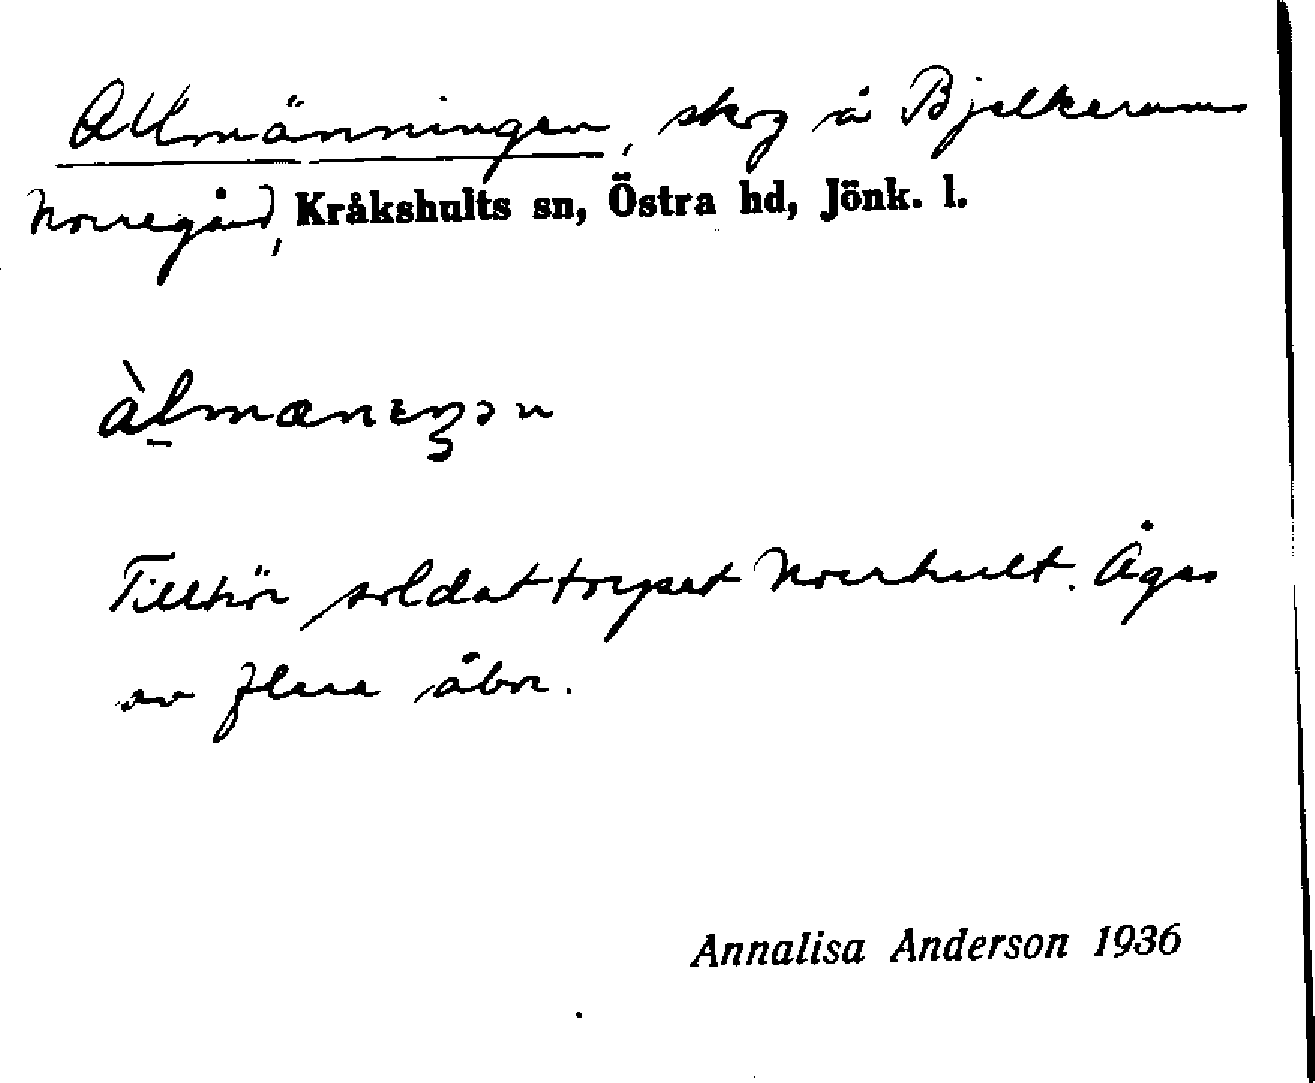 Allmänningen, skog å Bjelkerams
Norregård, Kråkshults sn, Östra hd, Jönk. l.
àlmænıŋən
Tillhör soldattorpet Norrhult. Ägas
av flera åbor.
Annalisa Anderson 1936